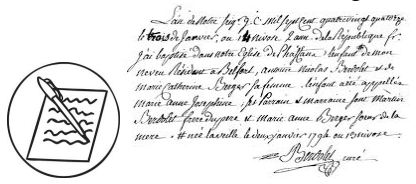 L'an de Notre Seig. J. C. mil sept cent quatre vingt quatorze
le trois de janvier, ou 14 nivose 2 ann. de la République fr.
j'ai baptisé dans notre Eglise de l'enfant de mon
neveu Résidant a Belfort, antoine nicolas Bertolet et de
marie Catherine Berger sa femme. l'enfant a été appellée
marie anne Josephine ses parrain et marraine sont Martin
Bertolet frere du pere et marie anne Berger soeur de la
mere # née la veille le deux janvier 1794 ou 13 nivose
Bertolet curé